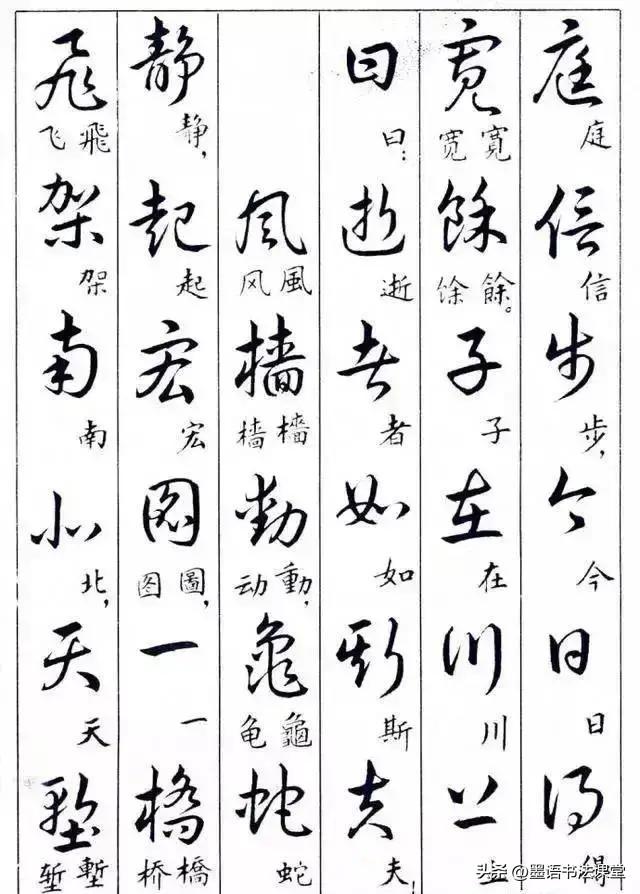 庭 庭 信 信 步 步, 今 今 日 日 得 得
寬 宽 寬 餘 馀 餘。 子 子 在 在 川 川 上 上
曰 曰: 逝 逝 者 者 如 如 斯 斯 夫 夫!
風 风 風 檣 樯 檣 動 动 動, 龜 龟 龜 蛇 蛇
静 静, 起 起 宏 宏 圖 图 圖, 一 一 橋 桥 橋
飛 飞 飛 架 架 南 南 北 北, 天 天 塹 堑 塹
头条 @墨语书法课堂